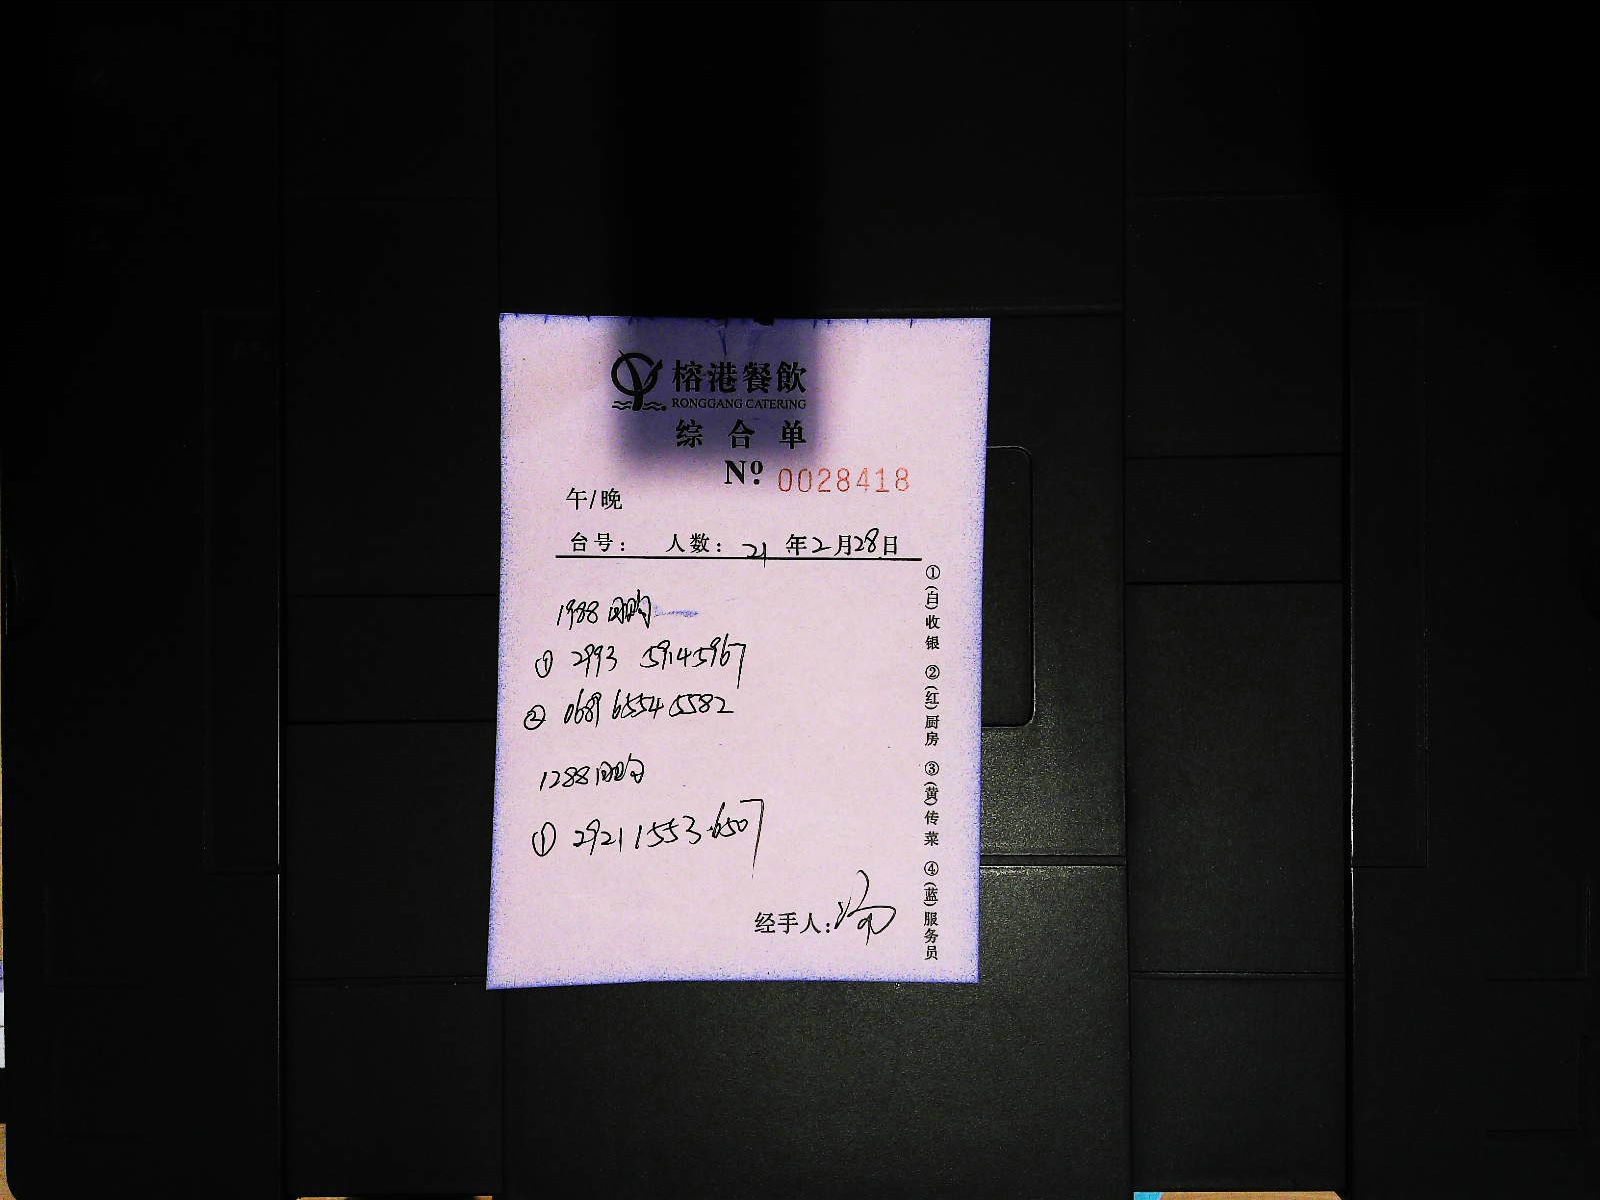 榕港餐飲
RONGGANG CATERING
综合单
Nº 0028418
午/晚
台号： 人数： 21年2月28日
1988团购
① 2993 59145967
② 0689 6554 5582
1288团购
① 2921 1553 6507
经手人：
①(白)收银 ②(红)厨房 ③(黄)传菜 ④(蓝)服务员